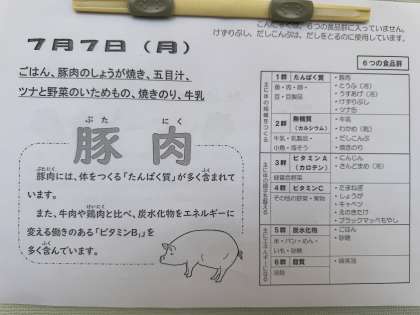 6つの食品群に入っていません。
けずりぶし、だしこんぶは、だしをとるのに使用しています。
7月7日（月）
6つの食品群
ごはん、豚肉のしょうが焼き、五目汁、
ツナと野菜のいためもの、焼きのり、牛乳
ぶた にく
豚 肉
ぶたにく ふく
豚肉には、体をつくる「たんぱく質」が多く含まれて
います。
けいにく
また、牛肉や鶏肉と比べ、炭水化物をエネルギーに
変える働きのある「ビタミンB₁」を
ふく
多く含んでいます。
1群 たんぱく質
魚・肉・卵・
豆・豆製品
・豚肉
・とうふ（冷）
・うすあげ（冷）
・けずりぶし
・ツナ缶
2群 無機質
（カルシウム）
牛乳・乳製品・
小魚・海そう
・牛乳
・わかめ（乾）
・だしこんぶ
・焼きのり
3群 ビタミンA
（カロテン）
緑黄色野菜
・にんじん
・さんどまめ（冷）
4群 ビタミンC
その他の野菜・果物
・たまねぎ
・しょうが
・キャベツ
・えのきたけ
・ブラックマッペもやし
5群 炭水化物
米・パン・めん・
いも・砂糖
・ごはん
・砂糖
6群 脂質
油脂
・綿実油